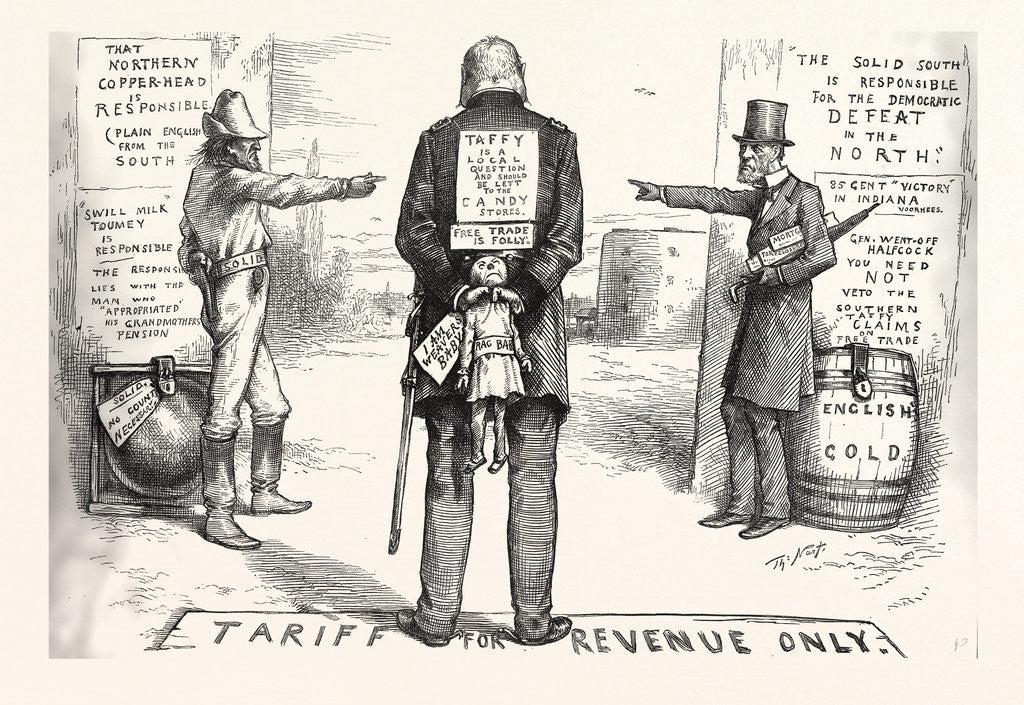 THAT
NORTHERN
COPPER-HEAD
IS
RESPONSIBLE
(PLAIN ENGLISH
FROM THE
SOUTH
"SWILL MILK"
TOUMEY
IS
RESPONSIBLE
THE RESPONSI
LIES WITH THE
MAN WHO
"APPROPRIATED"
HIS GRANDMOTHERS
PENSION
SOLID
SOLID.
NO COUNT
NECESSARY
TAFFY
IS A
LOCAL
QUESTION
AND SHOULD
BE LEFT
TO THE
CANDY
STORES.
FREE TRADE
IS FOLLY.
I AM
WEAVERS
BABY
RAG BAB
"THE SOLID SOUTH
IS RESPONSIBLE
FOR THE DEMOCRATIC
DEFEAT
IN THE
NORTH."
85 CENT "VICTORY"
IN INDIANA
VOORHEES.
GEN. WENT-OFF
HALFCOCK
YOU NEED
NOT
VETO THE
SOUTHERN
TAFFY
CLAIMS
ON
FREE TRADE
ENGLISH
GOLD
Th: Nast.
TARIFF "FOR REVENUE ONLY."